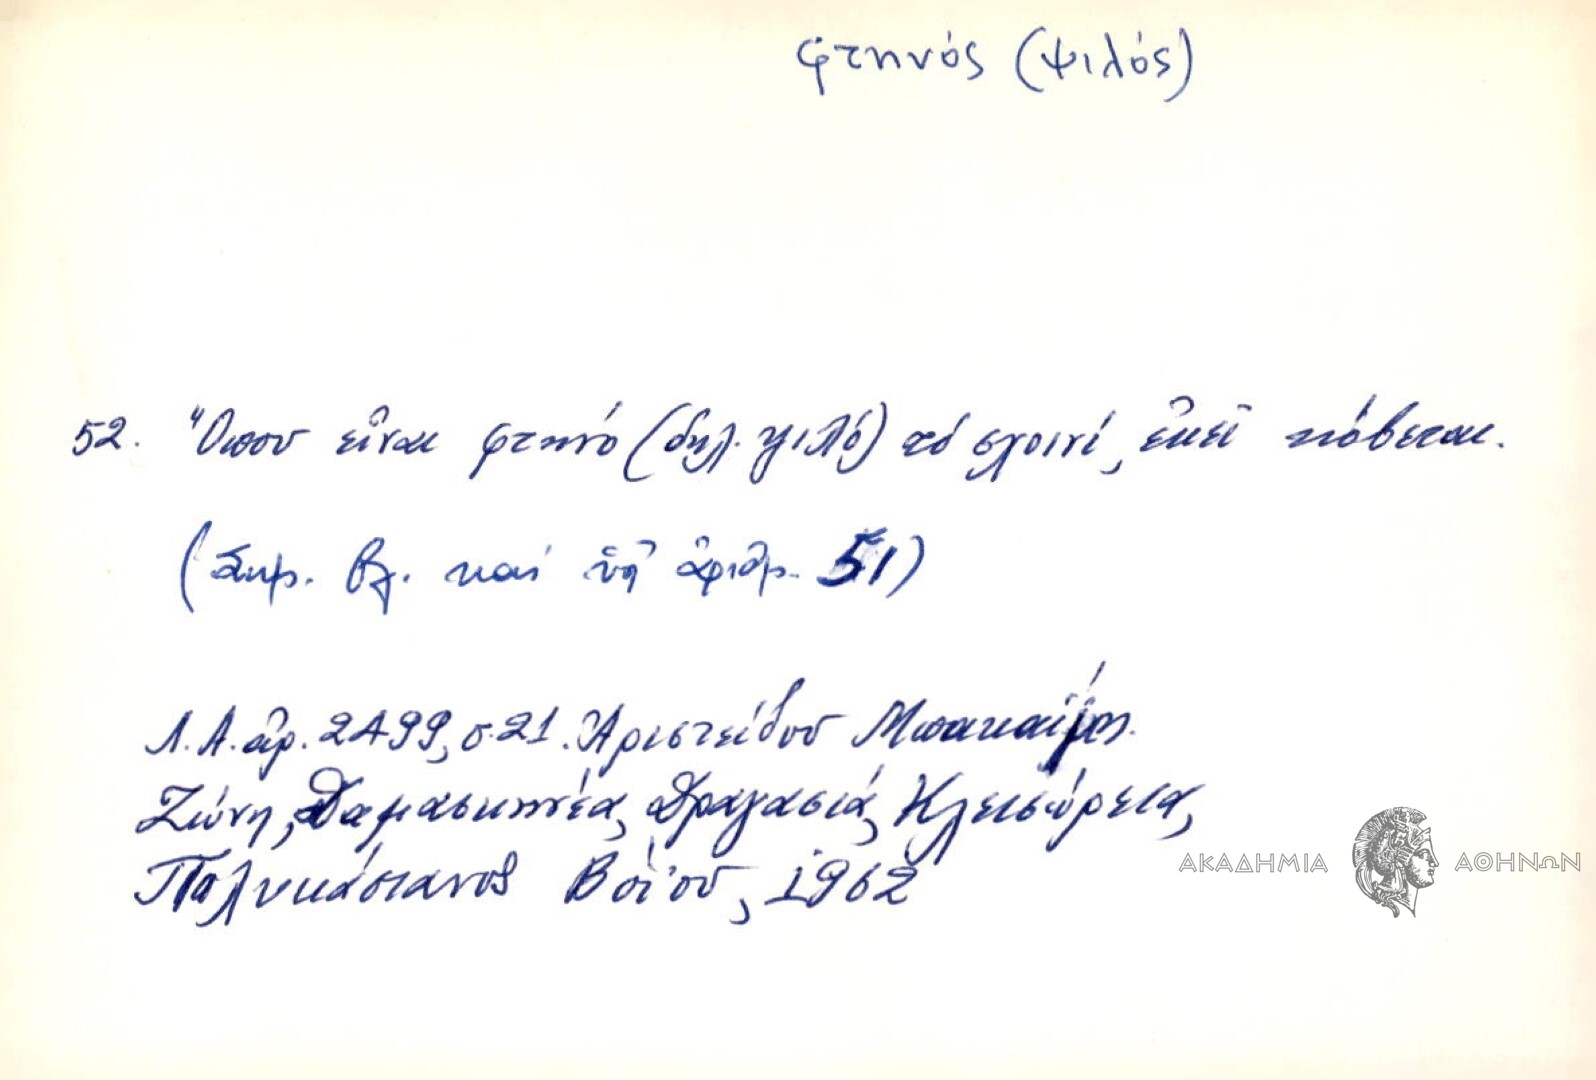 φτηνός (ψιλός)
52. Ὅπου εἶναι φτηνό (δηλ. ψιλό) τό σχοινί, ἐκεῖ κόβεται.
(Σημ. βλ. καί ὑπ' ἀριθμ. 51)
Λ.Α. ἀρ. 2499, σ. 21. Ἀριστείδου
Ζώνη, Δαμασκηνέα, Δραγασιά, Κλεισώρεια,
Πολυκάστανος Βοΐου, 1962
ΑΚΑΔΗΜΙΑ ΑΘΗΝΩΝ